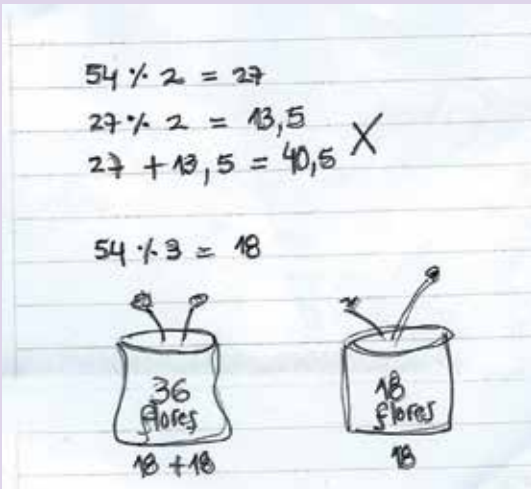 54 ٪ 2 = 27
27 ٪ 2 = 13,5
27 + 13,5 = 40,5 X
54 ٪ 3 = 18
36 flores
18 flores
18 + 18
18